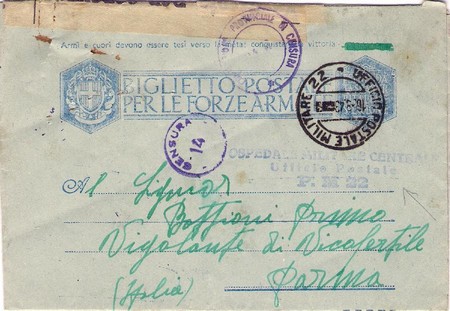 Armi e cuori devono essere tesi verso la conquista vittoria
CENSURA
BIGLIETTO POSTALE
PER LE FORZE ARMATE
UFFICIO POSTALE MILITARE 22
CENSURA
14
OSPEDALE MILITARE CENTRALE
Ufficio Postale
P. M. 22
Al Signor
Boffioni Primo
Vigolante di Vicofertile
Parma
(Italia)